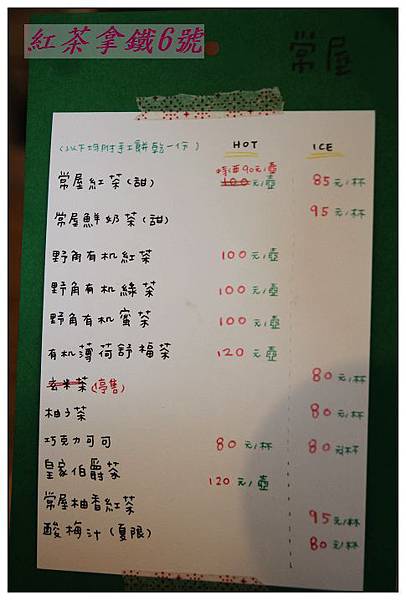 紅茶拿鐵6號
常屋
(以下均附手工餅乾一份) HOT ICE
常屋紅茶(甜) 特価90元/壺 100元/壺 85元/杯
常屋鮮奶茶(甜) 95元/杯
野角有机紅茶 100元/壺
野角有机綠茶 100元/壺
野角有机蜜茶 100元/壺
有机薄荷舒福茶 120元/壺
玄米茶(停售) 80元/杯
柚子茶 80元/杯
巧克力可可 80元/杯 80元/杯
皇家伯爵茶 120元/壺
常屋柚香紅茶 95元/杯
酸梅汁(夏限) 80元/杯